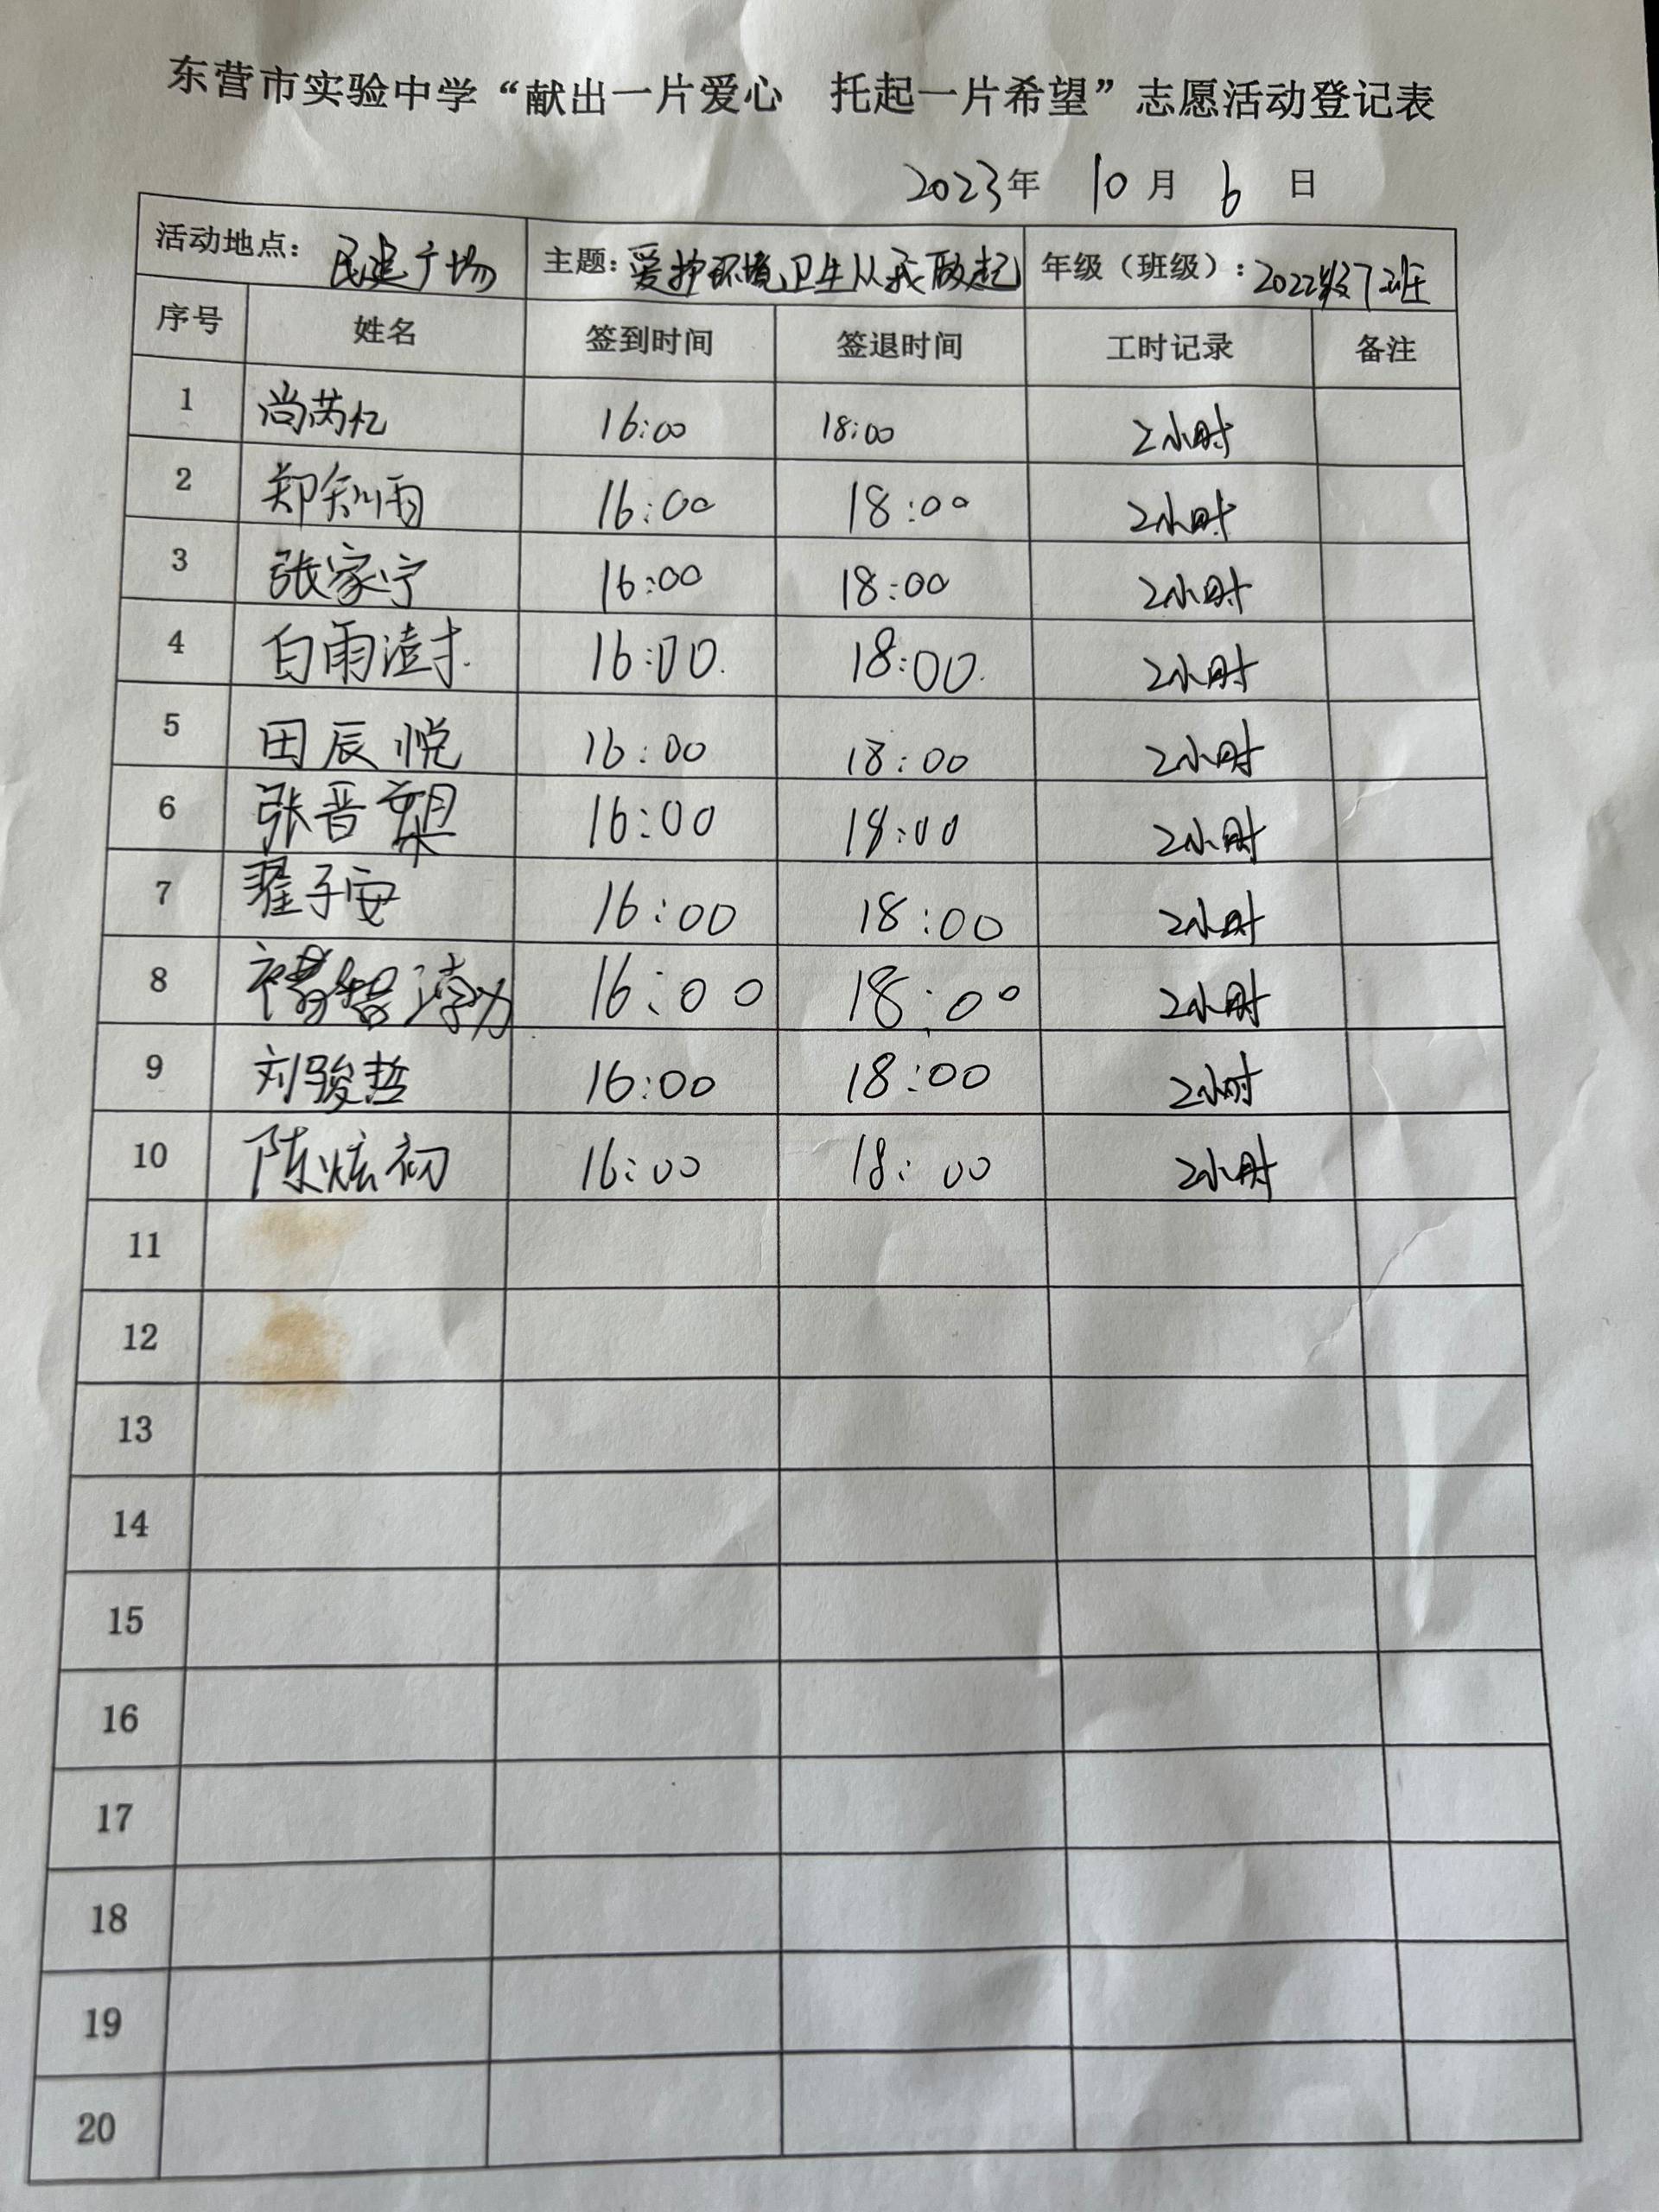 东营市实验中学“献出一片爱心 托起一片希望”志愿活动登记表
2023年 10月 6日
活动地点：民建广场 主题：爱护环境卫生从我做起 年级（班级）：2022级7班
序号 姓名 签到时间 签退时间 工时记录 备注
1 尚芮忆 16:00 18:00 2小时
2 郑知雨 16:00 18:00 2小时
3 张家宁 16:00 18:00 2小时
4 白雨澍 16:00 18:00 2小时
5 田辰悦 16:00 18:00 2小时
6 张晋 16:00 18:00 2小时
7 翟子安 16:00 18:00 2小时
8 16:00 18:00 2小时
9 刘骏哲 16:00 18:00 2小时
10 陈炫初 16:00 18:00 2小时
11
12
13
14
15
16
17
18
19
20